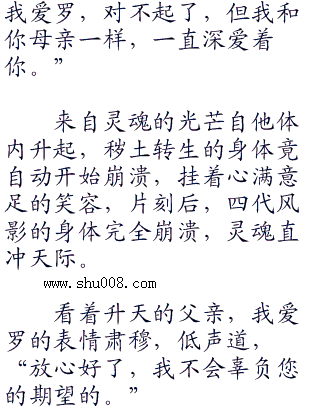 我爱罗，对不起了，但我和
你母亲一样，一直深爱着
你。”
来自灵魂的光芒自他体
内升起，秽土转生的身体竟
自动开始崩溃，挂着心满意
足的笑容，片刻后，四代风
影的身体完全崩溃，灵魂直
冲天际。
www.shu008.com
看着升天的父亲，我爱
罗的表情肃穆，低声道，
“放心好了，我不会辜负您
的期望的。”